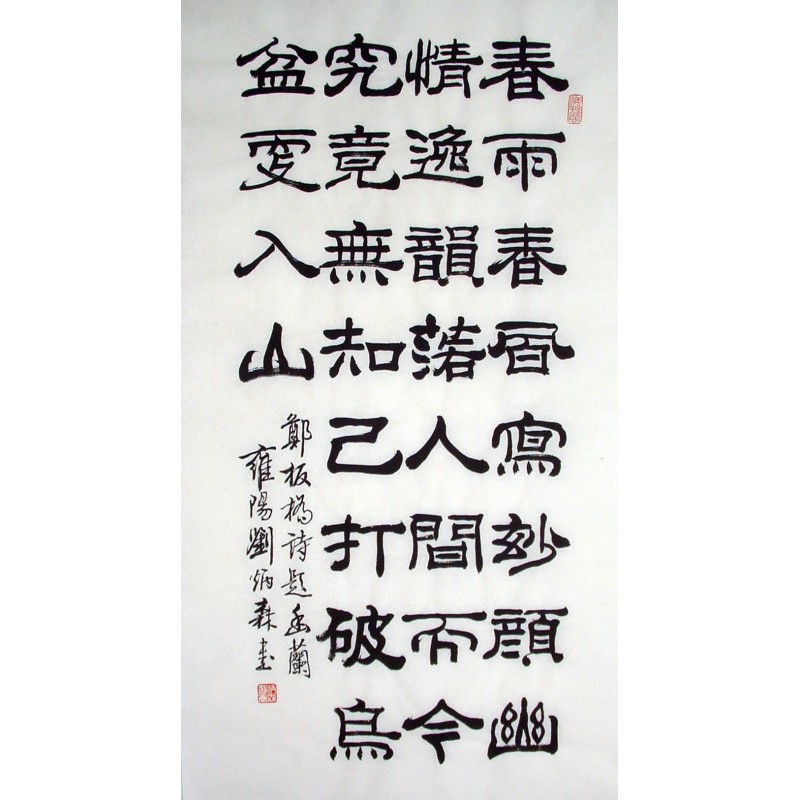 春雨春風寫妙顔幽
情逸韻落人間而今
究竟無知己打破烏
盆更入山
鄭板橋詩題幽蘭
雍陽劉炳森書